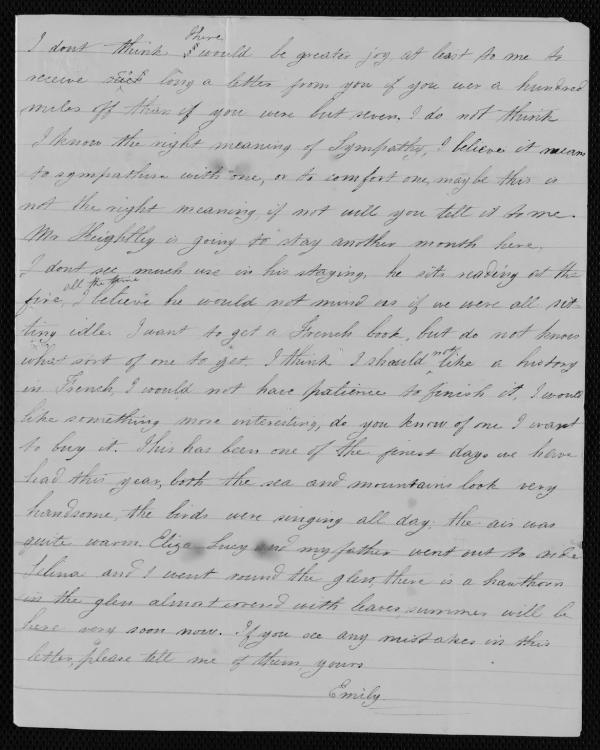 I dont think there would be greater joy at least to me to
receive such long a letter from you if you wer a hundred
miles off than if you were but seven. I do not think
I know the right meaning of Sympathy, I believe it means
to sympathise with one, or to comfort one, maybe this is
not the right meaning, if not will you tell it to me.
Mr Keightley is going to stay another month here,
I dont see much use in his staying, he sits reading at the
fire, all the time I believe he would not mind us if we were all sit-
ting idle. I want to get a French book, but do not know
what sort of one to get. I think I should not like a history
in French, I would not have patience to finish it, I would
like something more interesting, do you know of one I want
to buy it. This has been one of the finest days we have
had this year, both the sea and mountains look very
handsome, the birds were singing all day, the air was
quite warm. Eliza Lucy and my father went out to ride
Selina and I went round the glen, there is a hawthorn
in the glen almost covered with leaves, summer will be
here very soon now. If you see any mistakes in this
letter, please tell me of them, yours
Emily